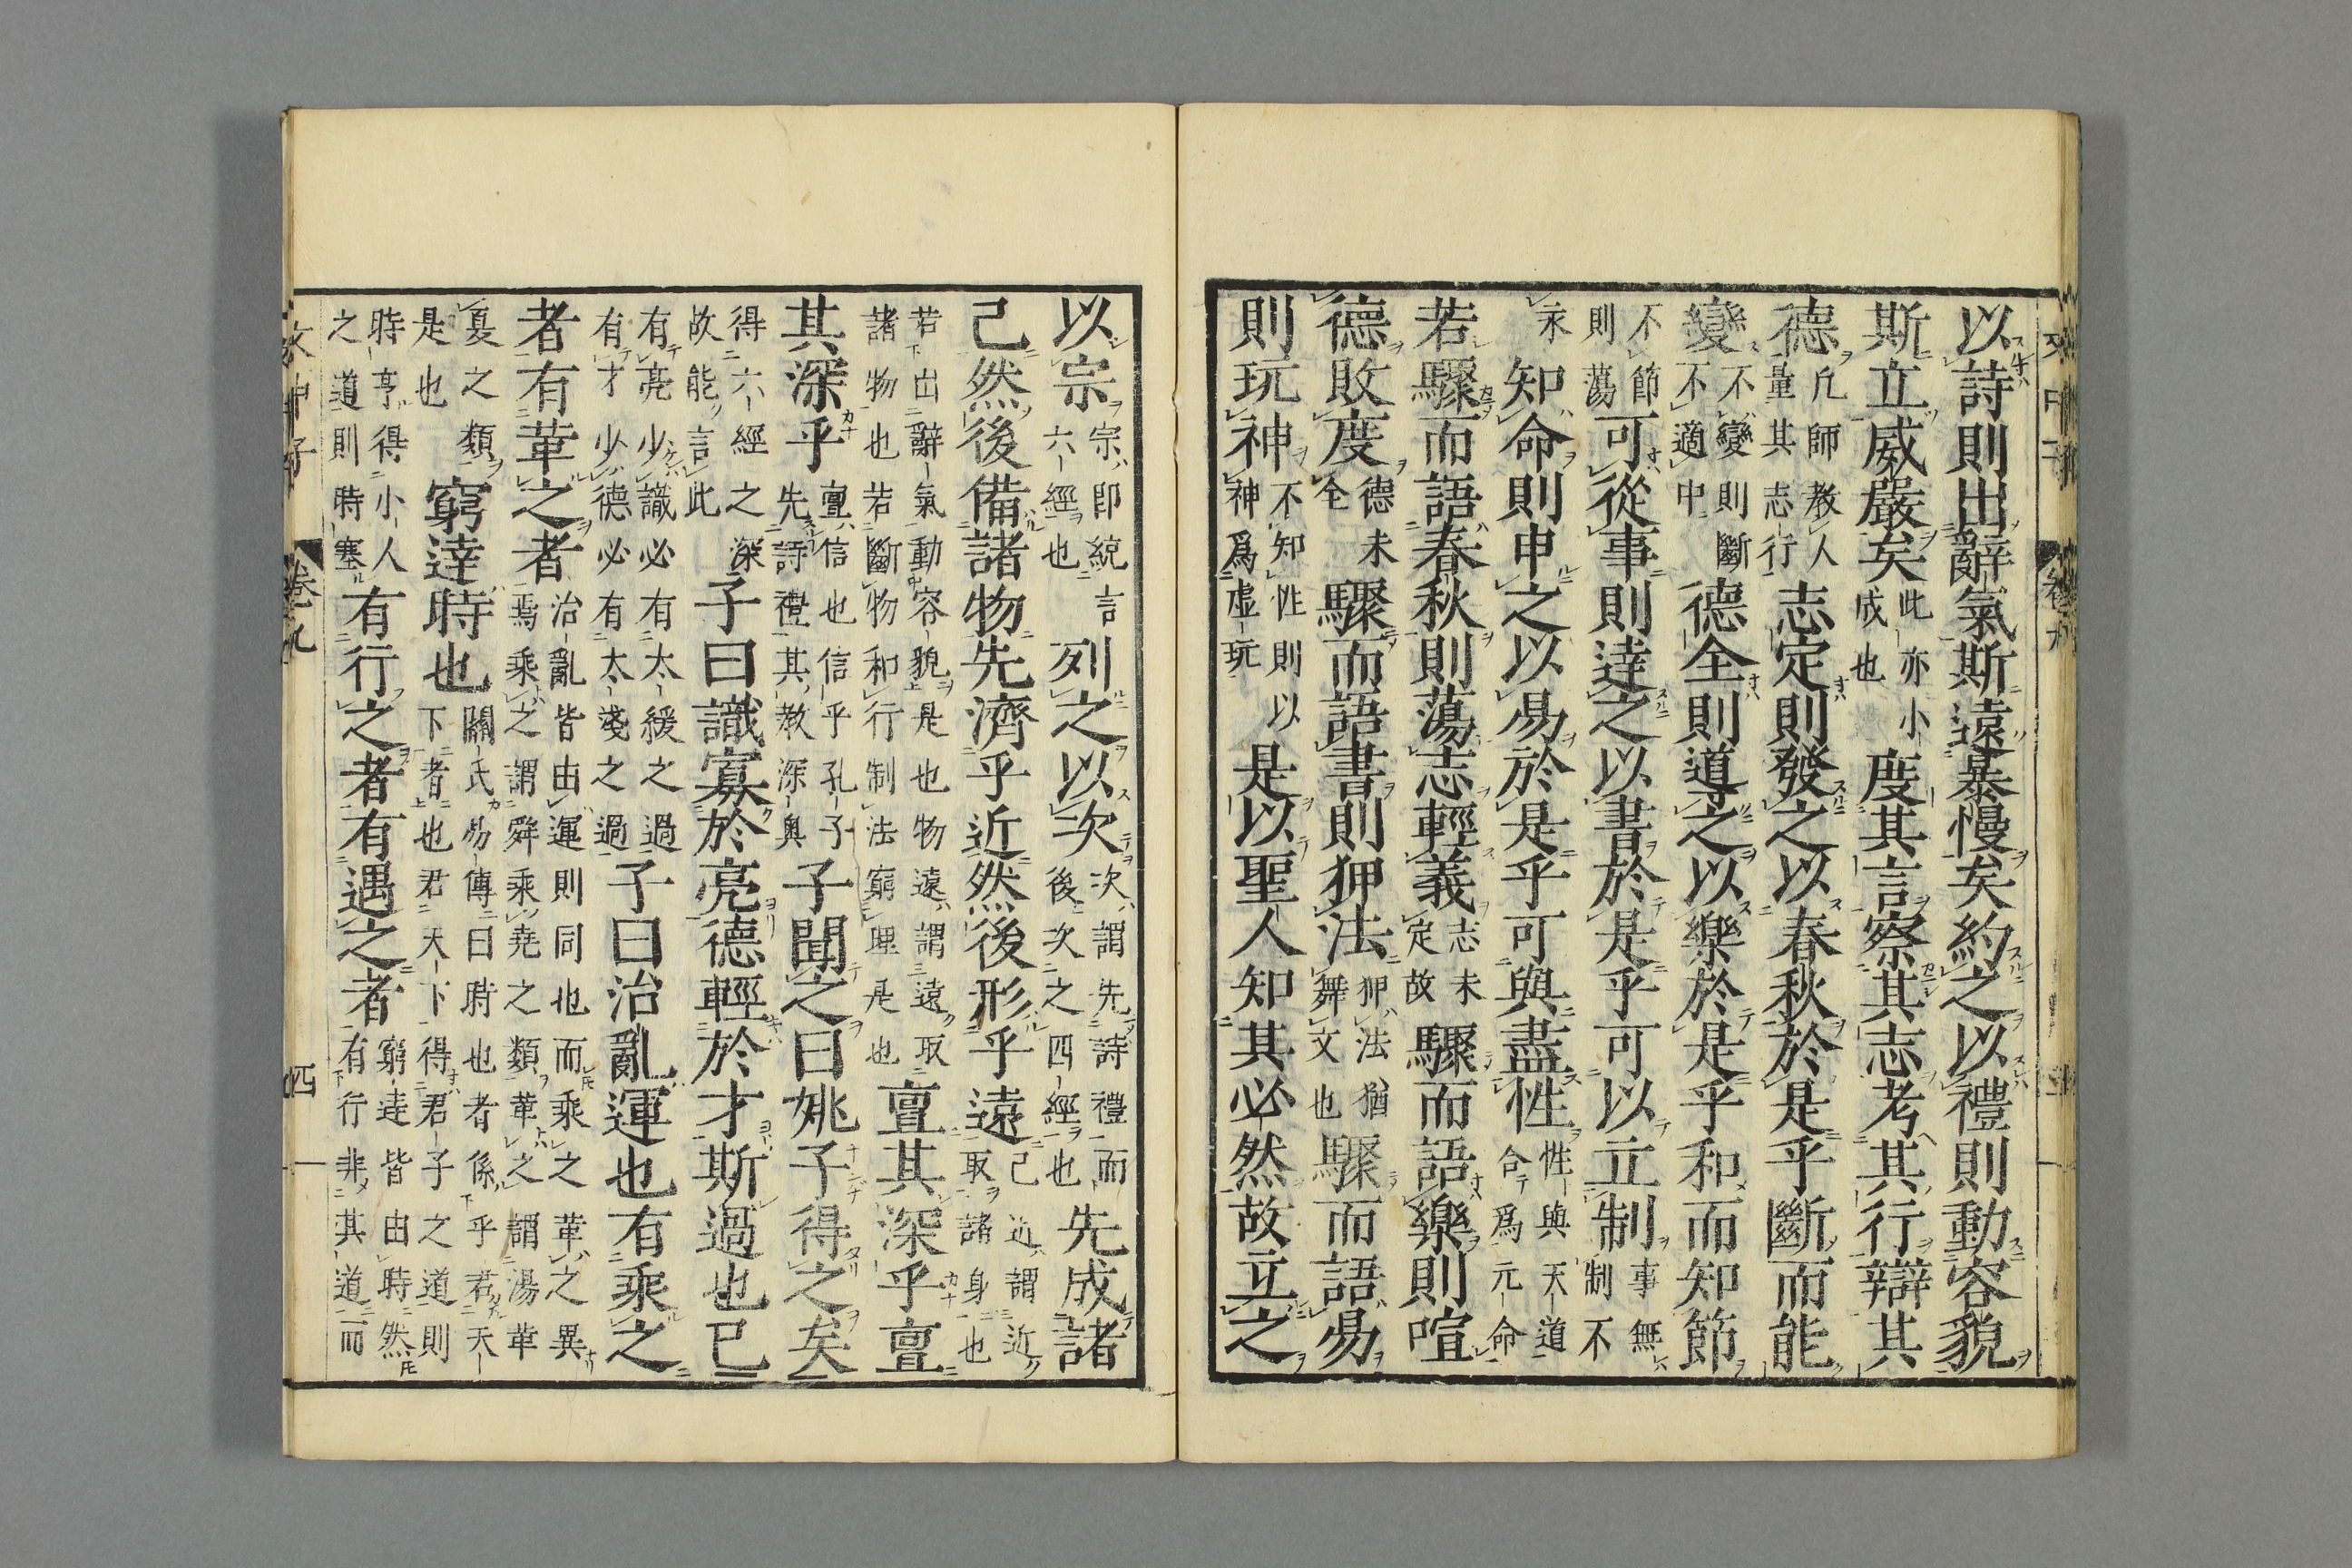 以詩則出辭氣斯遠暴慢矣約之以禮則動容貌
斯立威嚴矣此亦小成也度其言察其志考其行辯其
德凡師教人量其志行志定則發之以春秋於是乎斷而能
變不變則斷不適中德全則導之以樂於是乎和而知節
不節則蕩可從事則達之以書於是乎可以立制事無制不
永知命則申之以易於是乎可與盡性性與天道合爲元命
若驟而語春秋則蕩志輕義志未定故驟而語樂則喧
德敗度德未全驟而語書則狎法狎法猶舞文也驟而語易
則玩神不知性則以神爲虛玩是以聖人知其必然故立之
以宗宗即統言六經也列之以次次謂先詩禮而後次之四經也先成諸
己然後備諸物先濟乎近然後形乎遠己近謂近取諸身也
若出辭氣動容貌是也物遠謂遠取諸物也若斷物和行制法窮理是也亶其深乎亶
其深乎亶信也信乎孔子先詩禮其教深奥子聞之曰姚子得之矣
得六經之深故能言此子曰識寡於亮德輕於才斯過也已
有亮少識必有太緩之過有才少德必有太淺之過子曰治亂運也有乘之
者有革之者治亂皆由運則同也而乘之革之異焉乘之謂舜乘堯之類革之謂湯革
夏之類是也窮達時也關氏易傳曰時也者係乎君天下者也君天下得君子之道則
時亨得小人之道則時塞有行之者有遇之者窮達皆由時然有行非其道而
文中子 卷九 四